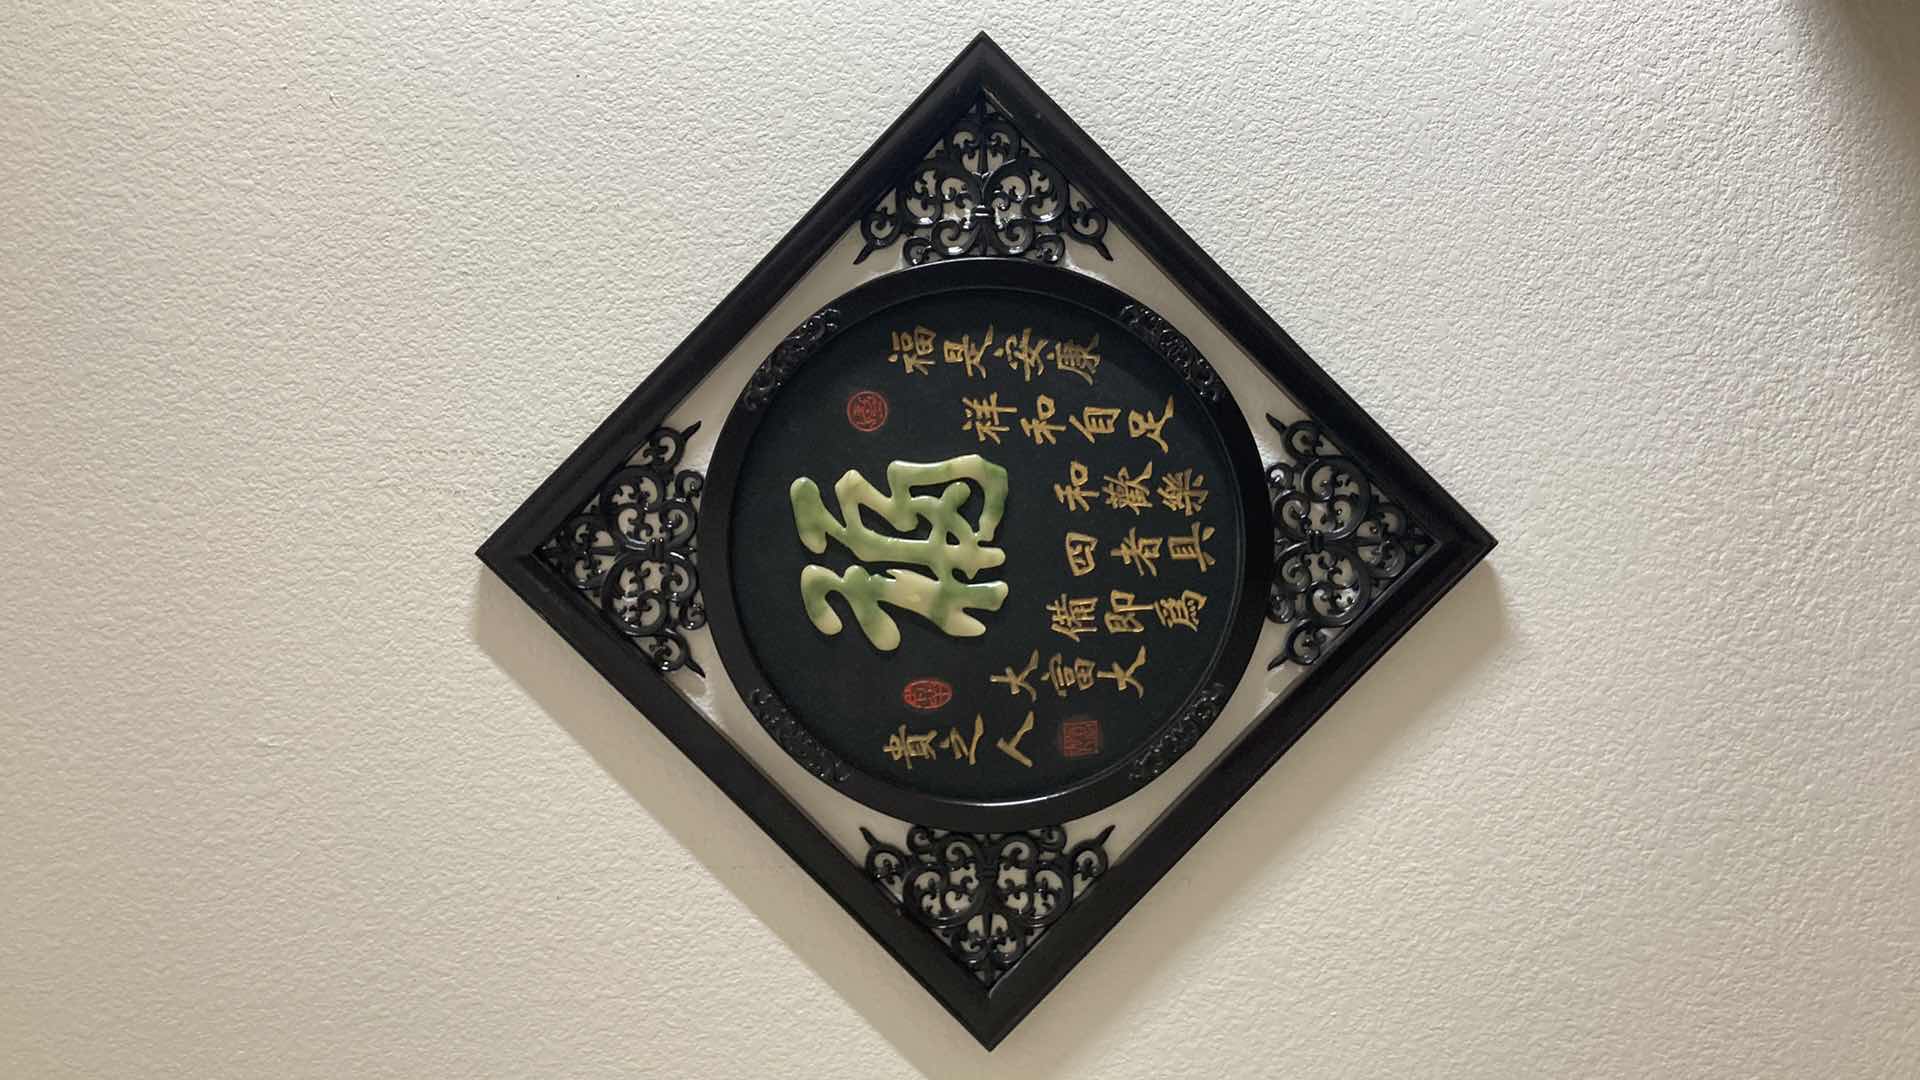 福
福是安康
祥和自足
和歡樂
四者具
備即爲
大富大
貴之人